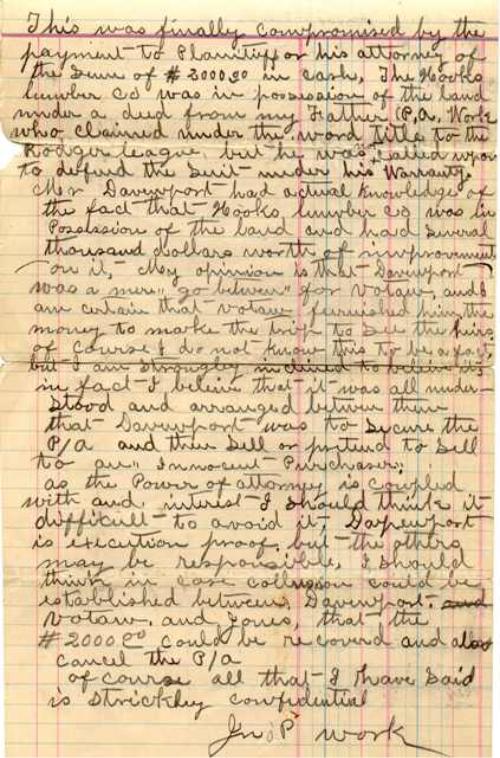 This was finally compromised by the
payment to Plaintiff or his attorney of
the Sum of #2000.00 in cash, The Hooks
lumber co was in possession of the land
under a deed from my Father (P,A, Work
who, claimed under the word title to the
Rodger league, but he was called upon
to defend the suit under his Warranty.
Mr Davenport had actual knowledge of
the fact that Hooks lumber co was in
Possession of the land and had several
thousand dollars worth of improvement
on it, My opinion is that Davenport
was a mere "go between" for Votaw, and I
am certain that Votaw furnished him the
money to make the trip to see the heirs
of course I do not know this to be a fact,
but I am strongley inclined to believe it,
in fact I beleive that it was all under-
stood and arranged between them
that Davenport was to secure the
P/A and then Sell or pretend to sell
to an "Innocent Purchaser,"
as the Power of attorney is coupled
with and interest I should think it
difficult to avoid it Davenport
is execution proof, but the others
may be responsible, I should
think in case collusion could be
established between Davenport,
Votaw, and Jones, that the
#2000.00 could be recoverd and also
cancel the P/A
of course all that I have said
is strickley confidential
Jno P work